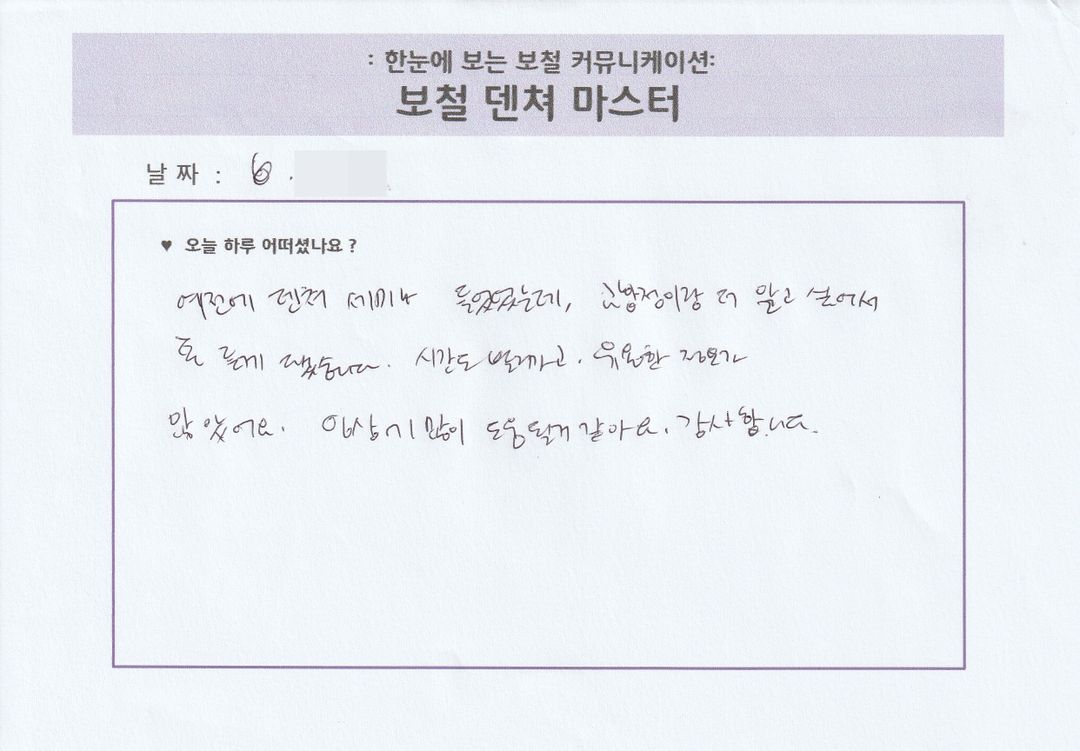 : 한눈에 보는 보철 커뮤니케이션:
보철 덴쳐 마스터
날 짜 : 6 .
♥ 오늘 하루 어떠셨나요 ?
예전에 덴쳐 세미나 들었었는데, 더 알고 싶어서
또 듣게 됐습니다. 시간도 빨리가고. 유용한 정보가
많았어요. 임상에 많이 도움될거 같아요. 감사합니다.